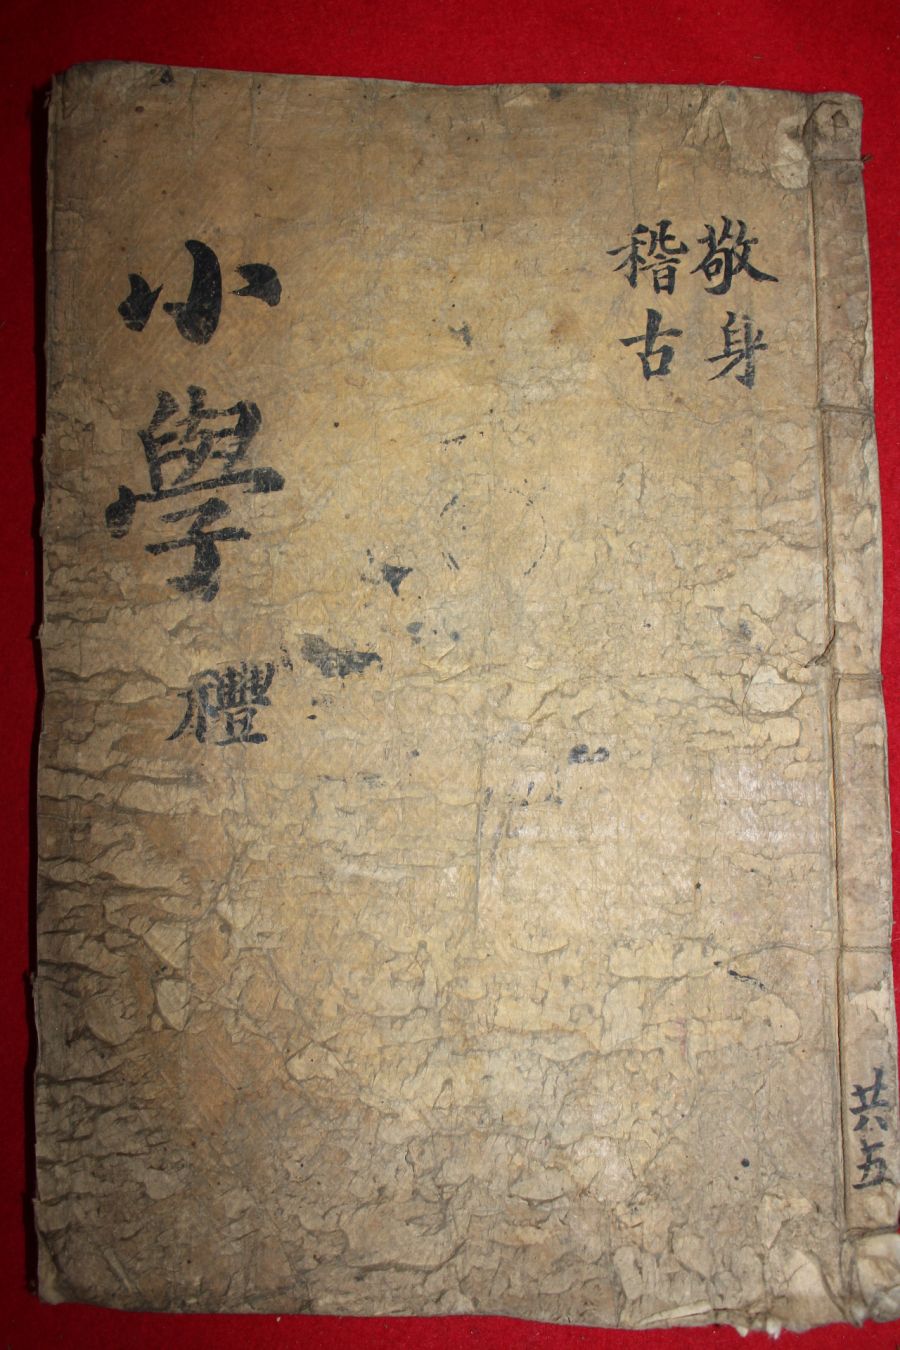 敬身
稽古
小學
禮
共五